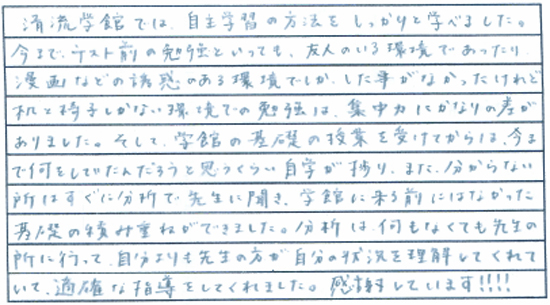 清流学館では、自主学習の方法をしっかりと学べました。
今まで、テスト前の勉強といっても、友人のいる環境であったり、
漫画などの誘惑のある環境でしか、した事がなかったけれど
机と椅子しかない環境での勉強は、集中力にかなりの差が
ありました。そして、学館の基礎の授業を受けてからは、今ま
で何をしていたんだろうと思うくらい自学が捗り、また、分からない
所はすぐに分析で先生に聞き、学館に来る前にはなかった
基礎の積み重ねができました。分析は、何もなくても先生の
所に行って、自分よりも先生の方が自分の状況を理解してくれて
いて、適確な指導をしてくれました。感謝しています!!!!